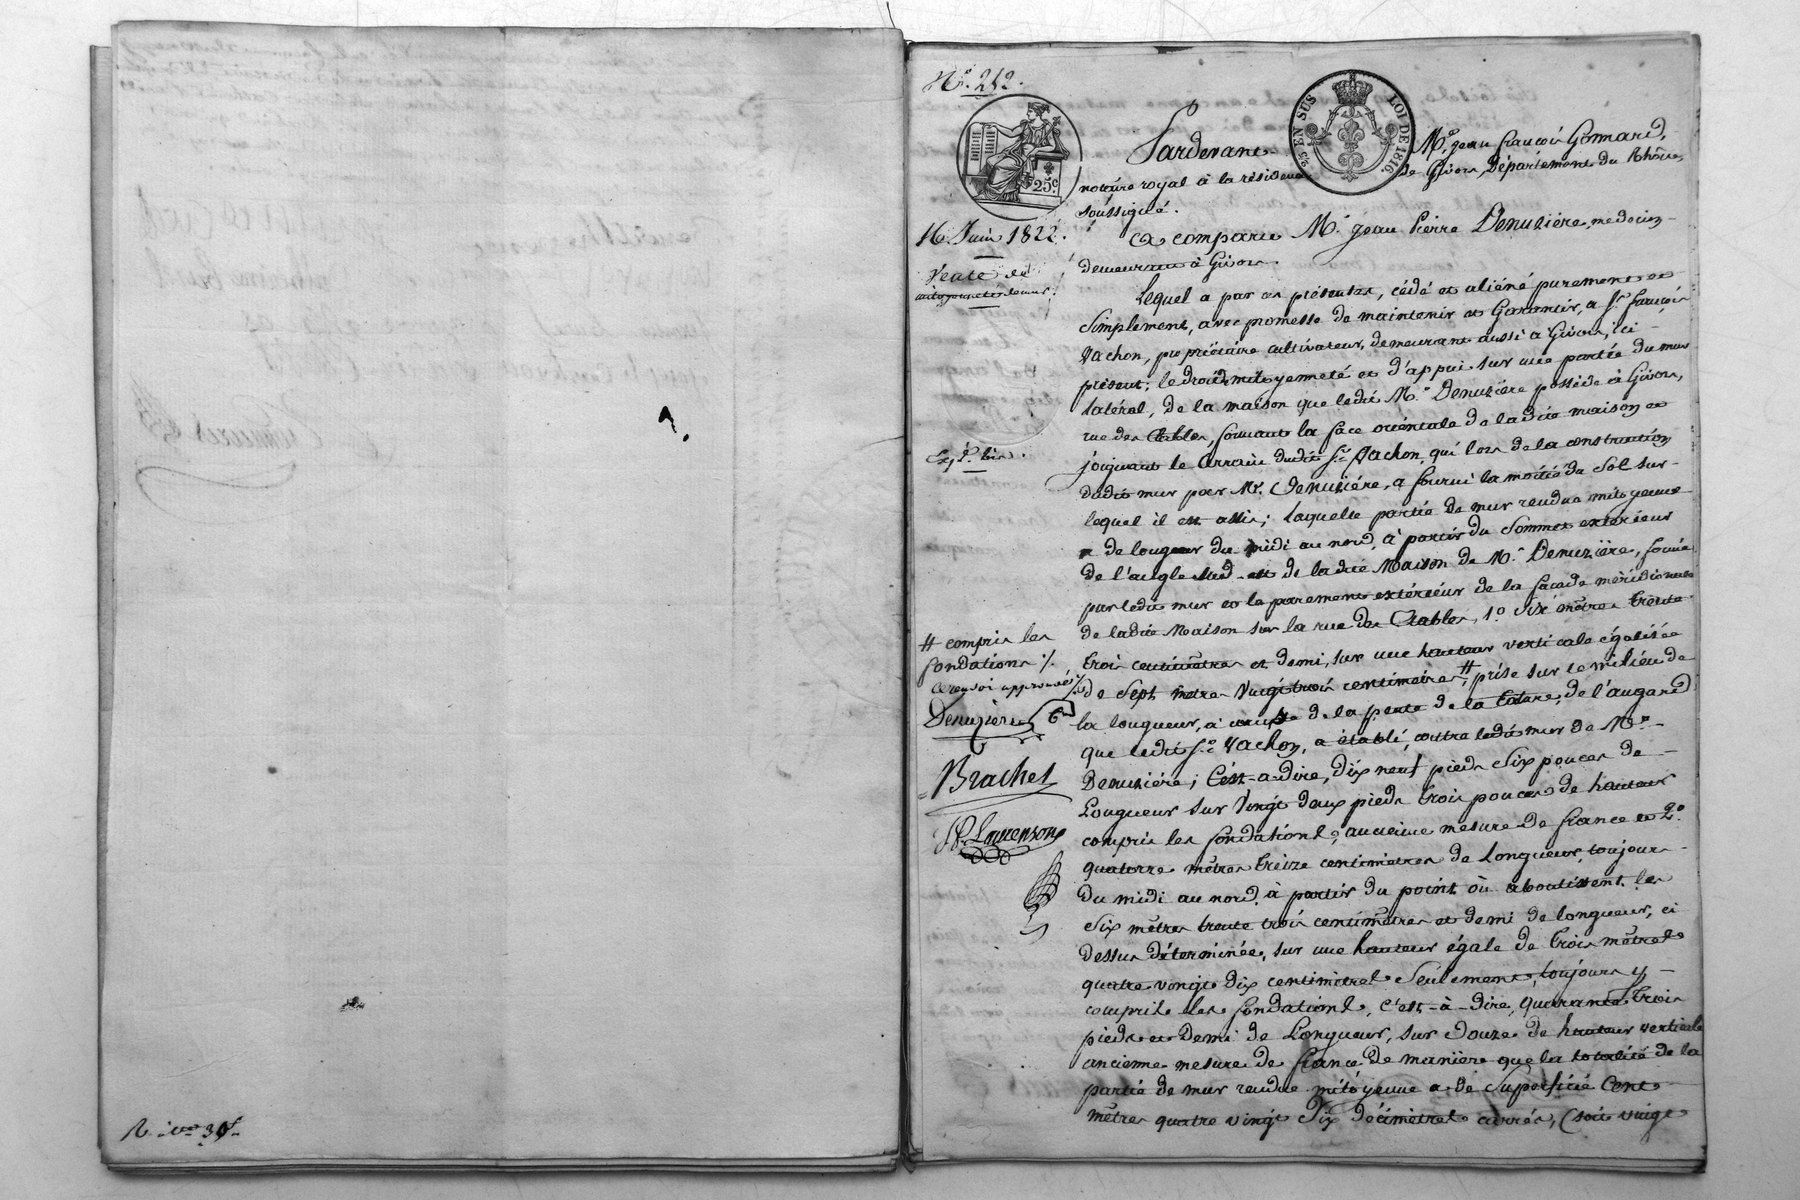 N° 252.
25 EN SUS LOI DE 1816.
25c
Pardevant Me. jean françois Gomard,
notaire royal à la résidence de Givors, Département du Rhône,
soussigné.
16. Juin 1822.
Vente de
mitoyenneté de mur.
Expd. bis.
a comparu Mr. jean Pierre Denuzière, medecin
demeurant à Givors.
Lequel a par ces présentes, cédé et aliéné purement et
Simplement, avec promesse de maintenir et Garantir, a Sr. françois
Vachon, propriétaire cultivateur, demeurant aussi à Givors, ici
présent; le droit de mitoyenneté et d'appui sur une partie du mur
latéral, de la maison que ledit Mr. Denuzière possède à Givors,
rue des Etables, formant la face orientale de ladite maison et
joignant le terrain dudit Sr. Vachon, qui lors de la construction
dudit mur par Mr. Denuzière, a fourni la moitié du Sol sur
lequel il est assis; laquelle partie de mur rendue mitoyenne
a de longueur du midi au nord, à partir du Sommet extérieur
de l'angle sud-est de ladite Maison de Mr. Denuzière, formé
par ledit mur et le parement extérieur de la façade méridionale
de ladite Maison sur la rue des Etables, 1°. six mètres trente
trois centimètres et demi, sur une hauteur verticale égalisée
de Sept mètres Vingt trois centimètres, # prise sur le milieu de
la longueur, à cause de la pente de la toiture, de l'angard
que ledit Sr. Vachon, a établi, contre ledit mur de Mr.
Denuzière; C'est-a-dire, dix neuf pieds Six pouces de
Longueur sur Vingt deux pieds trois pouces de hauteur
compris les fondations, ancienne mesure de france et 2°.
quatorze mètres treize centimètres de Longueur, toujours
du midi au nord, à partir du point où aboutissent les
Six mètres trente trois centimètres et demi de longueur, ci
dessus déterminée, sur une hauteur égale de trois mètres
quatre vingt dix centimètres Seulement, toujours y
compris les fondations, c'est-à-dire, quarante trois
pieds et Demi de Longueur, sur Douze de hauteur verticale
ancienne mesure de france de manière que la totalité de la
partie de mur rendue mitoyenne a de Superficie Cent
mètres quatre vingt Dix Décimètres carrés, (soit vingt
# compris les
fondations ./.
ce renvoi approuvé ./.
Denuzière
G
Brachet
JP. Laurenson